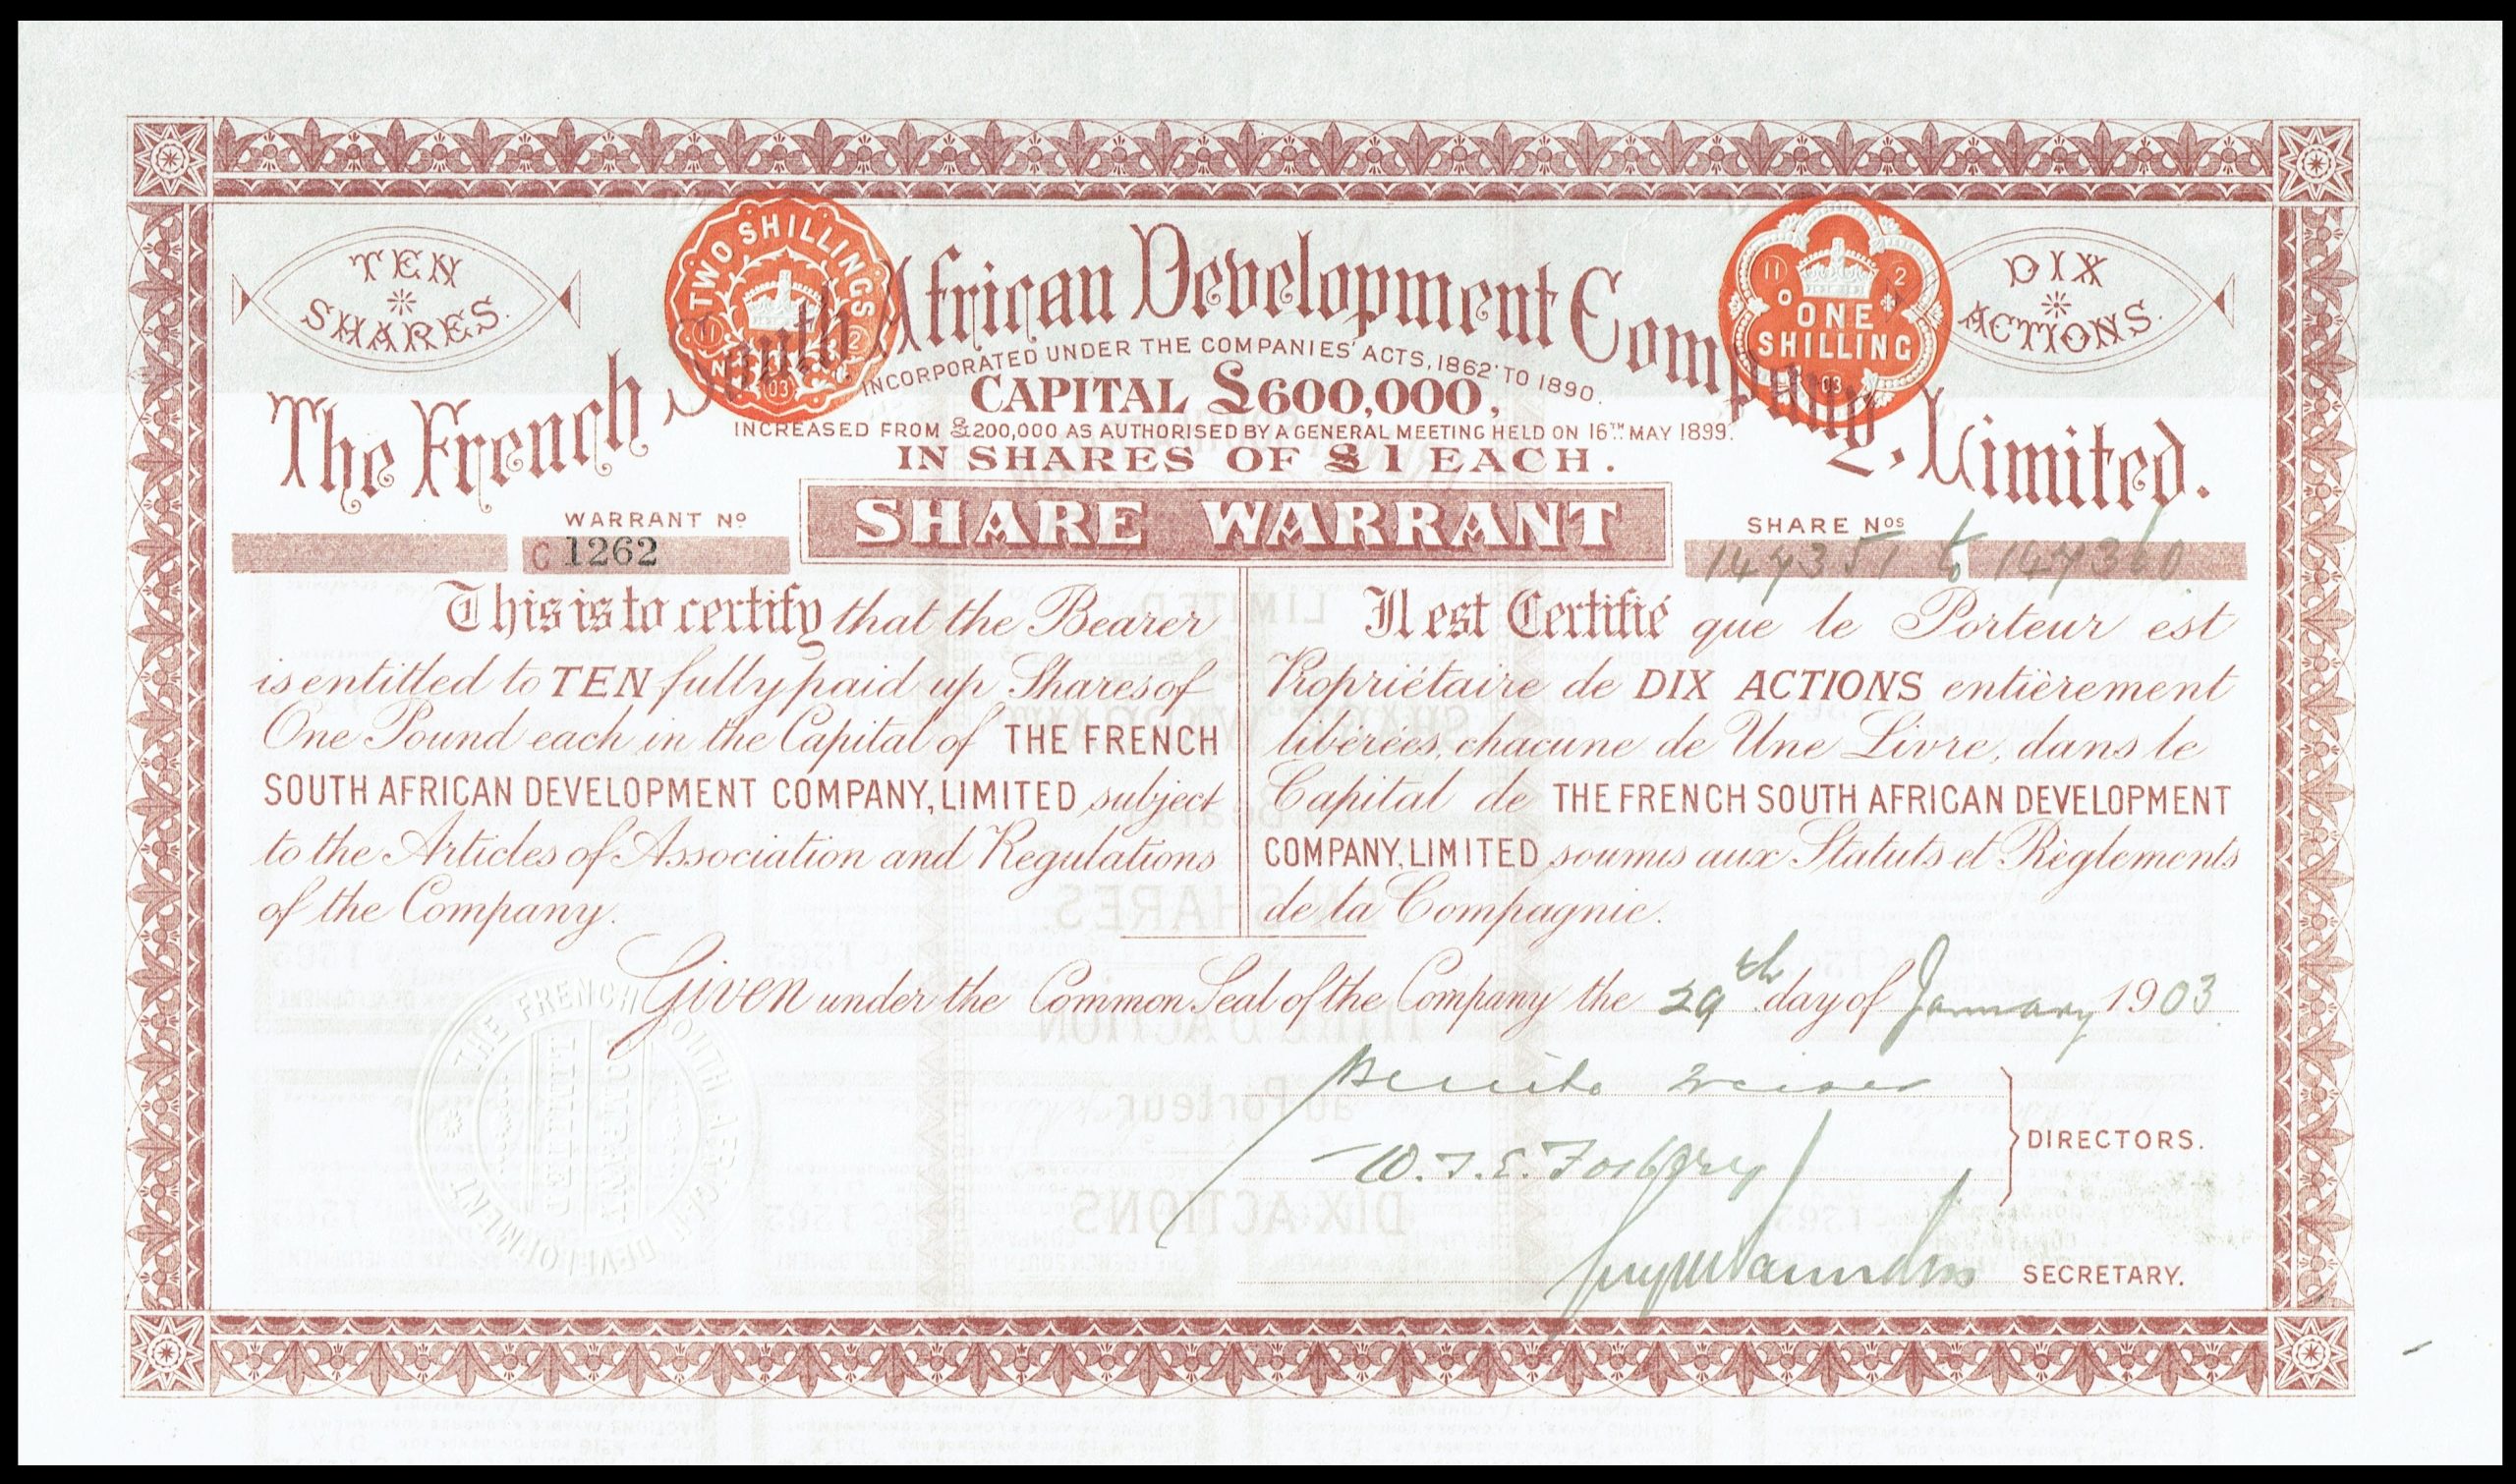 TEN
SHARES.
TWO SHILLINGS
11 2
03
11 2
ONE
SHILLING
03
DIX
ACTIONS.
The French South African Development Company, Limited.
INCORPORATED UNDER THE COMPANIES' ACTS, 1862 TO 1890.
CAPITAL £600,000,
INCREASED FROM £200,000 AS AUTHORISED BY A GENERAL MEETING HELD ON 16TH MAY 1899.
IN SHARES OF £1 EACH.
WARRANT No
C 1262
SHARE WARRANT
SHARE Nos
147351 to 147360
This is to certify that the Bearer
is entitled to TEN fully paid up Shares of
One Pound each in the Capital of THE FRENCH
SOUTH AFRICAN DEVELOPMENT COMPANY, LIMITED subject
to the Articles of Association and Regulations
of the Company.
Il est Certifié que le Porteur est
Propriétaire de DIX ACTIONS entièrement
libérées, chacune de Une Livre, dans le
Capital de THE FRENCH SOUTH AFRICAN DEVELOPMENT
COMPANY, LIMITED soumis aux Statuts et Règlements
de la Compagnie.
Given under the Common Seal of the Company the 29th day of January 1903.
THE FRENCH SOUTH AFRICAN DEVELOPMENT
COMPANY
LIMITED
DIRECTORS.
SECRETARY.